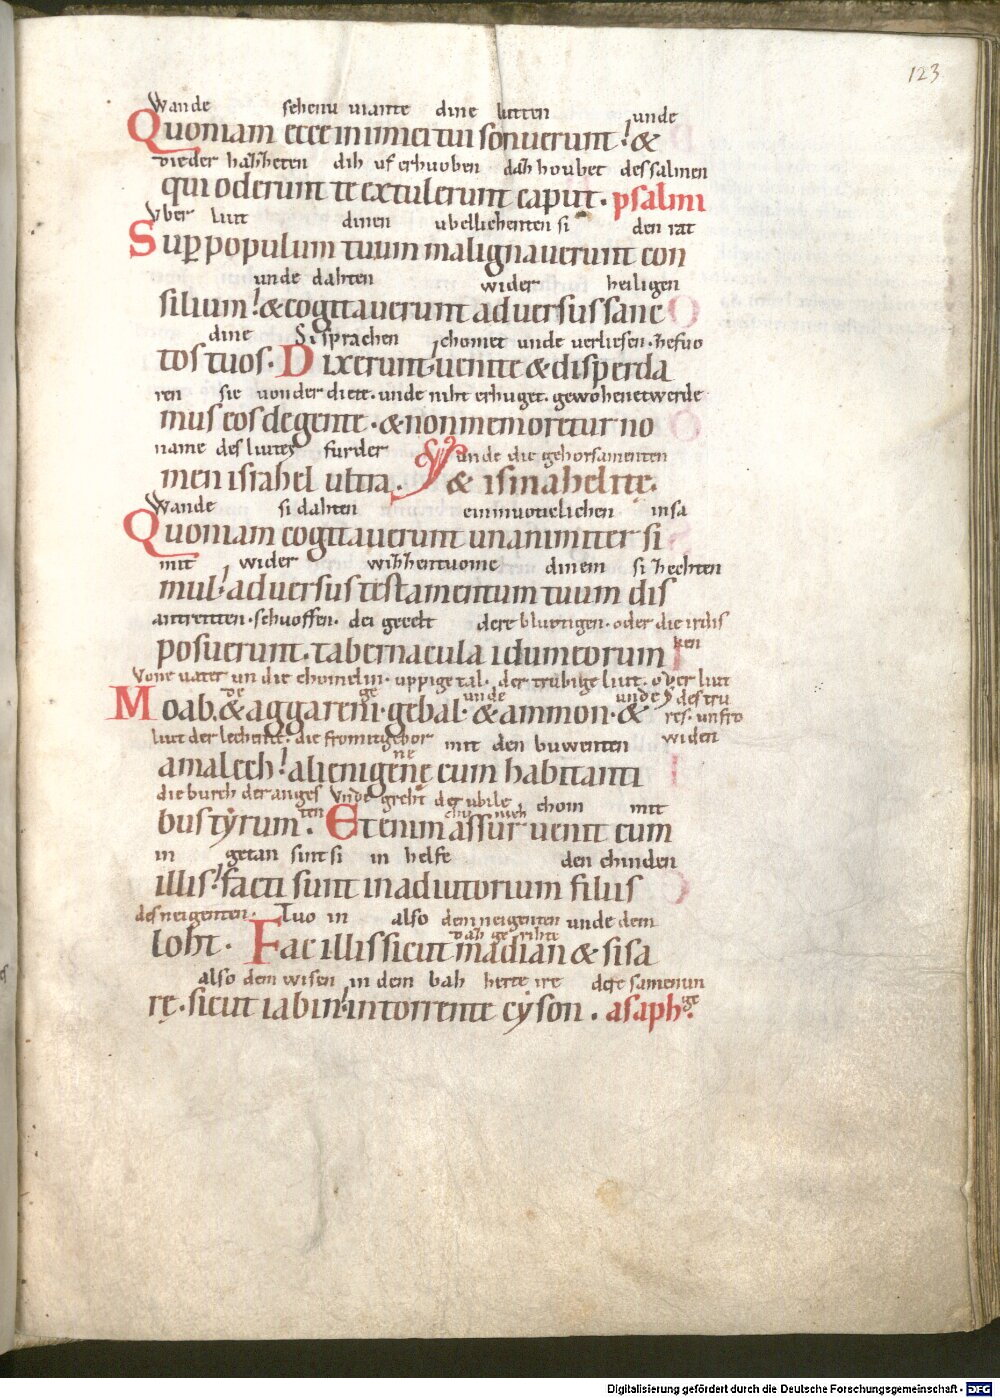 123
Wande sehenu viante dine lutten unde
Quoniam ecce inimici tui sonuerunt ! &
dieder hazheten dih uf erhuoben daz houbet dessalmen
qui oderunt te extulerunt caput . psalmi
Vber liut dinen ubellichenten si den rat
Sup populum tuum malignauerunt con
unde dahten wider heiligen
silium ! & cogitauerunt aduersus sanc
dine Si sprachen chomet unde uerliesen . hefuo
tos tuos . Dixerunt uenite & disperda
ren sie uonder diett . unde niht erhuget . gewohenetwerde
mus eos de gente . & non memoretur no
name des liutes furder unde die gehorsamenten
men israhel ultra . & ismahelite .
Wande si dahten einmuotielichen insa
Quoniam cogitauerunt unanimiter si
mit wider wizzentuome dinem si zechten
mul ! aduersus testamentum tuum dis
antreitten . schuoffen . dei gecelt dere bluotigen . oder die irdis
posuerunt . tabernacula idumeorum
ken
Vone uater un die chomelin . uppige tal . der trubige liut . oder liut
Moab . & aggareni . gebal . & ammon . &
unde des tru
res . unfro
liut der lechente . die fromitgebor mit den buwenten widen
amalech ! alienigene cum habitanti
die burch der anges Vnde greht der ubile chom mit
bus tyrum . Etenim assur uenit cum
in getan sint si in helfe den chinden
illis ! facti sunt in adiutorium filiis
des neigenten . Tuo in also dem neigenten unde dem
loht . Fac illis sicut madian & sisa
also dem wisen in dem bah herte ire dere samenun
rę . sicut iabin ! in torrente cyson . asaph .
ge
Digitalisierung gefördert durch die Deutsche Forschungsgemeinschaft - DFG